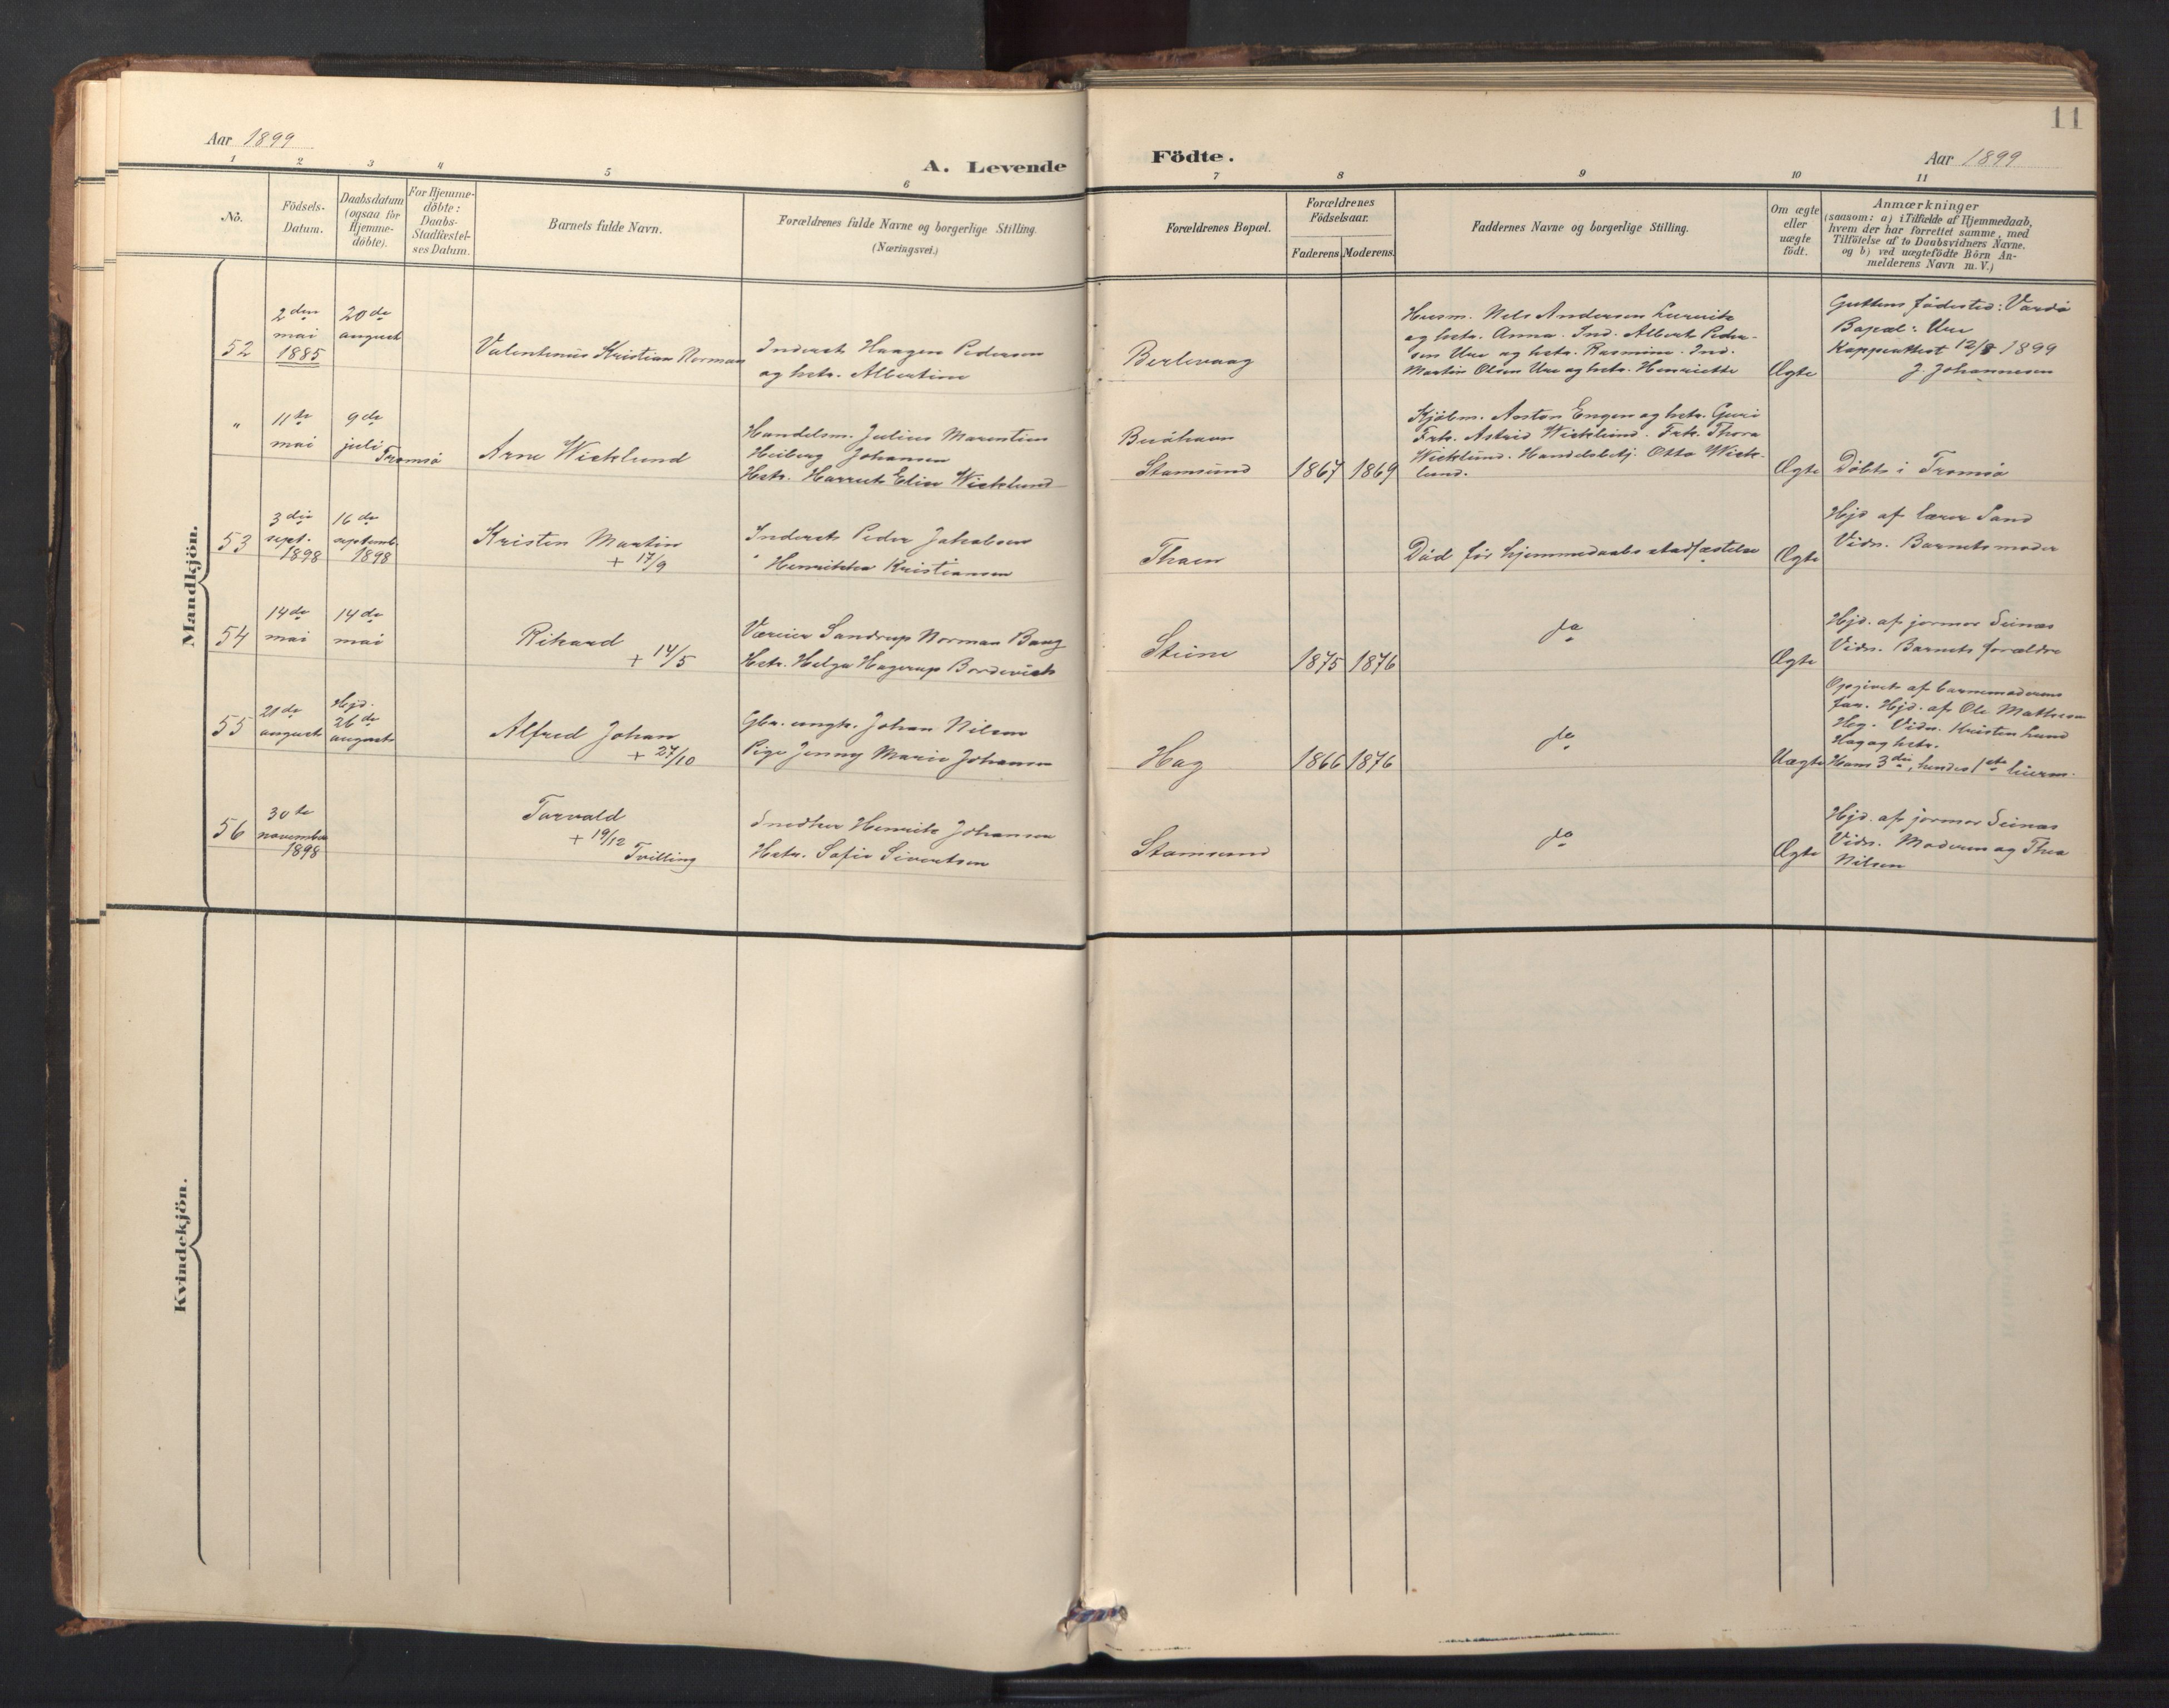 11
Aar 1899
A. Levende
Födte.
Aar 1899
1 2 3 4 5 6 7 8 9 10 11
No.
Födsels-
Datum.
Daabsdatum
(ogsaa for
Hjemme-
döbte).
For Hjemme-
döbte:
Daabs-
Stadfæstel-
ses Datum.
Barnets fulde Navn.
Forældrenes fulde Navne og borgerlige Stilling.
(Næringsvei.)
Forældrenes Bopæl.
Forældrenes
Födselsaar.
Faderens Moderens.
Faddernes Navne og borgerlige Stilling.
Om ægte
eller
uægte
födt.
Anmærkninger
(saasom: a) i Tilfælde af Hjemmedaab,
hvem der har forrettet samme, med
Tilföielse af to Daabsvidners Navne,
og b) ved uægtefödte Börn An-
melderens Navn m. V.)
Mandkjön.
52
2den
mai
1885
20de
august
Valentinus Kristian Norman
Inderst Haagen Pedersen
og hstr. Albertine
Berlevaag
Husm. Nels Andersen
og hstr. Anna. Ind. Albert Peder-
sen Ure og hstr. Rasmine. Ind.
Martin Olsen Ure og hstr. Henriette
Ægte
Guttens födested: Vardö
Bopæl: Ure
Koppeattest 12/8 1899
J. Johannesen
"
11te
mai
9de
juli
Tromsö
Arne Wicklund
Handelsm. Julius Marentius
Heiberg Johansen
Hstr. Harriet Elise Wicklund
Stamsund
1867 1869
Kjöbm. Anton Engen og hstr. Guri
Frk. Astrid Wicklund. Frk. Thora
Wicklund. Handelsbetj. Otto Wick-
lund.
Ægte
Döbt i Tromsö
53
3die
sept.
1898
16de
septemb.
1898
Kristen Martin
+ 17/9
Inderst Peder Jakobsen
" Henrikka Kristiansen
Thaen
Död för hjemmedaabs stadfæstelse
Ægte
Hjd af lærer Sand
Vidn. Barnets moder
54
14de
mai
14de
mai
Rikard
+ 14/5
Væreier Sandrup Norman Bang
Hstr. Helga Hagerup Bordevich
Steine
1875 1876
do
Ægte
Hjd. af jormor Seines
Vidn. Barnets forældre
55
21de
august
Hjd.
26de
august
Alfred Johan
+ 27/10
Gbr. ungk. Johan Nilsen
Pige Jenny Marie Johansen
Hag
1866 1876
do
Uægte
Opgivet af barnemoderens
far. Hjd. af Ole Mathisen
Hag. Vidn. Kristen Lund
Hag og hstr.
Hans 3die, hendes 1ste leierm.
56
30te
november
1898
Torvald
+ 19/12
Tvilling
Snedker Henrik Johansen
Hstr. Sofie Sivertsen
Stamsund
do
Ægte
Hjd. af jormor Seines
Vidn. Moderen og Thea
Nilsen
Kvindekjön.